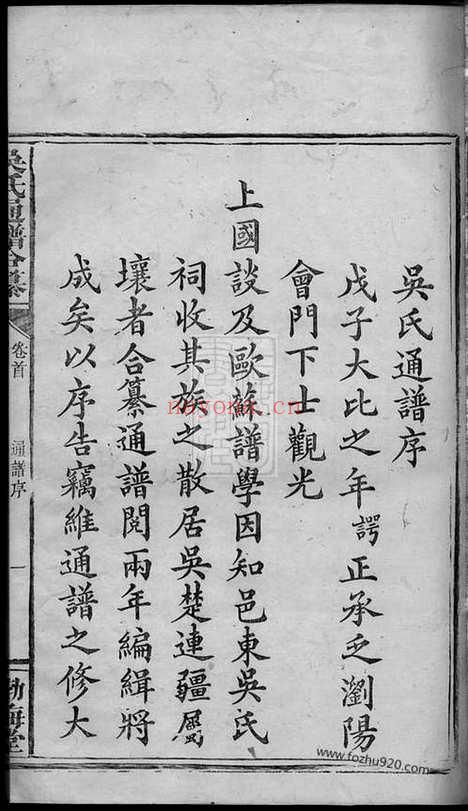 吳氏通譜序
戊子大比之年諤正承乏瀏陽
會門下士觀光
上國談及歐蘇譜學因知邑東吳氏
祠收其族之散居吳楚連疆屬
壤者合纂通譜閱兩年編緝將
成矣以序告竊維通譜之修大
吳氏通譜合纂
卷首
通譜序
一
渤海堂
nayona.cn
www.fozhu920.com